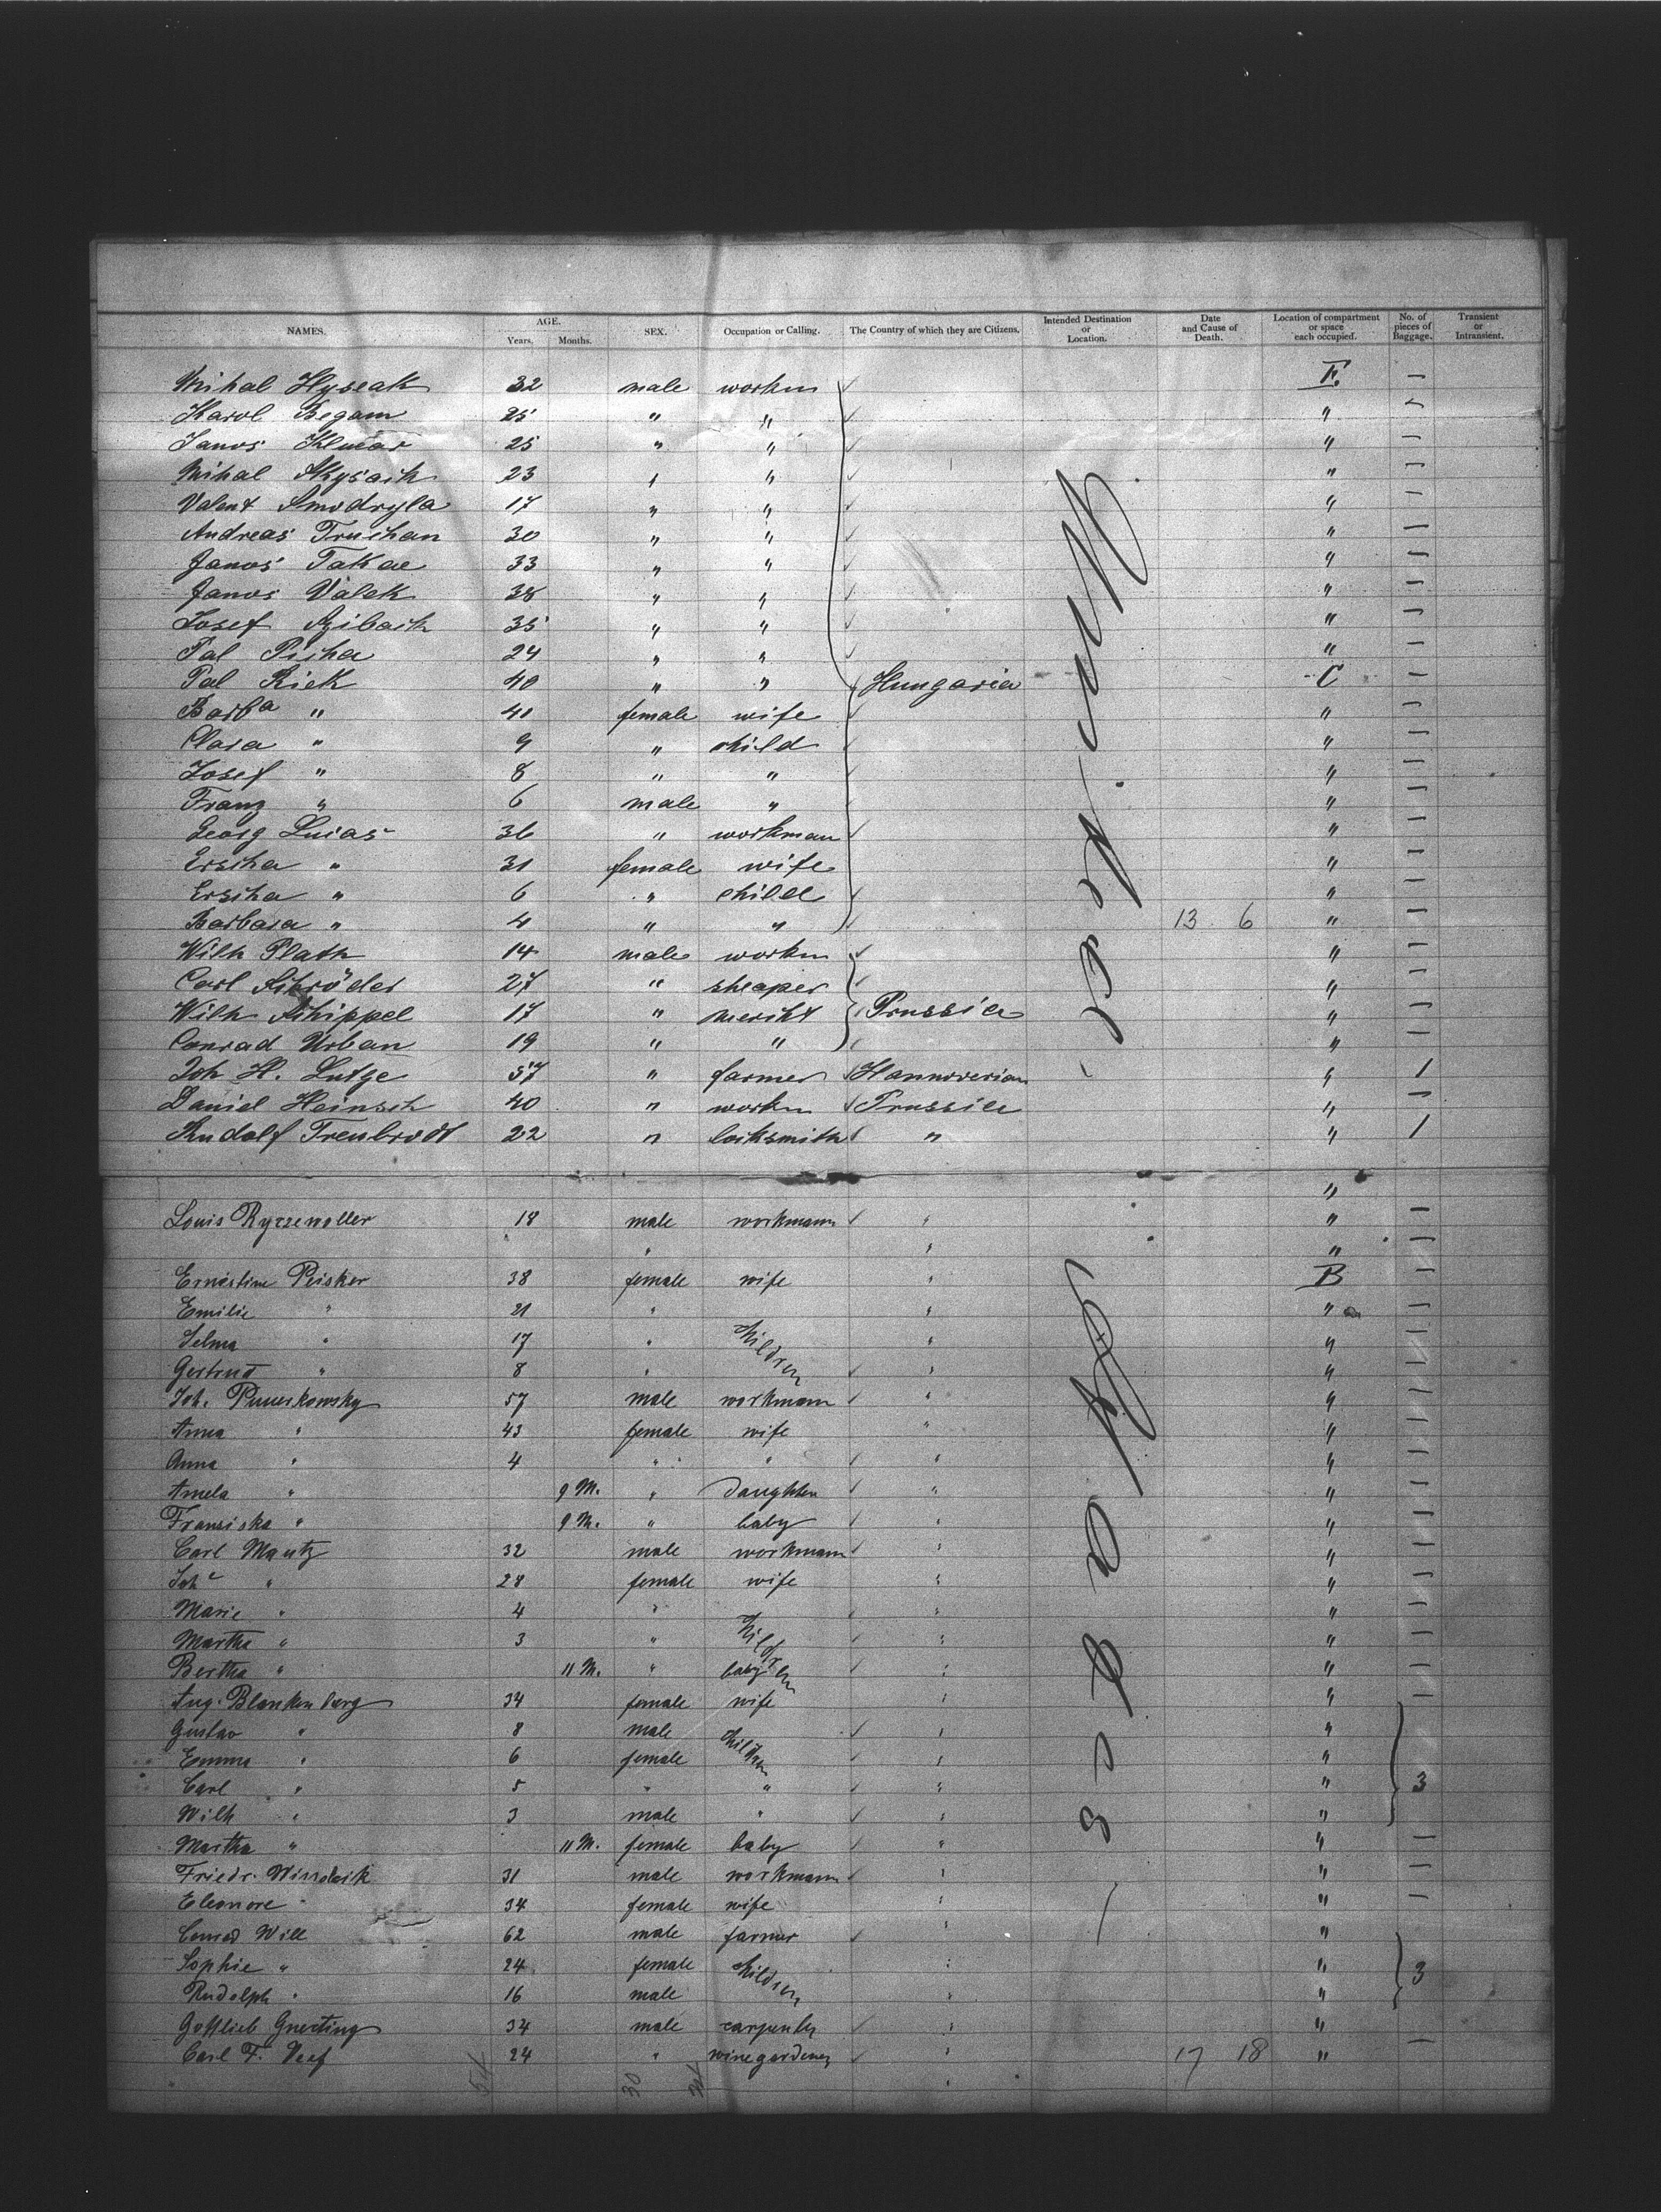 NAMES. AGE. Years. Months. SEX. Occupation or Calling. The Country of which they are Citizens. Intended Destination or Location. Date and Cause of Death. Location of compartment or space each occupied. No. of pieces of Baggage. Transient or Intransient.
Mihal Hyseak 32 male workm F. —
Karol Begam 25 " " " —
Janos Klučar 25 " " " —
Mihal 23 " " " —
Valent Smodryla 17 " " " —
Andreas Truchan 30 " " " —
Janos Takac 33 " " " —
Janos Valek 38 " " " —
Josef 35 " " " —
Pal Picha 24 " " " —
Pal Rick 40 " " Hungaria C —
Barba " 41 female wife " —
Clara " 9 " child " —
Josef " 8 " " " —
Franz " 6 male " " —
Georg Lucas 36 " workman " —
Ersiha " 31 female wife " —
Ersiha " 6 " child " —
Barbara " 4 " " 13 6 " —
Wilh Plath 14 male workm " —
Carl Schröder 27 " sheaper " —
Wilh Schippel 17 " mercht Prussia " —
Conrad Urban 19 " " " —
Joh H. Lutge 57 " farmer Hannoverian " 1
Daniel Heinsch 40 " workm Prussia " —
Rudolf Treubrodt 22 " locksmith " " 1
"
Louis 18 male workmann " " —
" " " —
Ernestine Peisker 38 female wife " B —
Emilie " 21 " " " —
Selma " 17 " children " " —
Gertrud " 8 " " " —
Joh. 57 male workmann " " —
Anna " 43 female wife " " —
Anna " 4 " " " " —
Amela " 9 M. " Daughter " " —
Fransiska " 9 M. " baby " " —
Carl Mantz 32 male workmann " " —
Joh " 28 female wife " " —
Marie " 4 " " " —
Martha " 3 " children " " —
Bertha " 11 M. " baby " " —
Aug. Blankenberg 34 female wife " " —
Gustav " 8 male children " "
Emma " 6 female " "
Carl " 5 " " " " 3
Wilh " 3 male " " "
Martha " 11 M. female baby " " —
Friedr. 31 male workmann " " —
Eleonore " 34 female wife " " —
Conrad Will 62 male farmer " "
Sophie " 24 female children " " 3
Rudolph " 16 male " "
Gottlieb Gnerting 34 male carpenter " "
Carl F. Veef 24 " winegardener " 17 18 " —
30